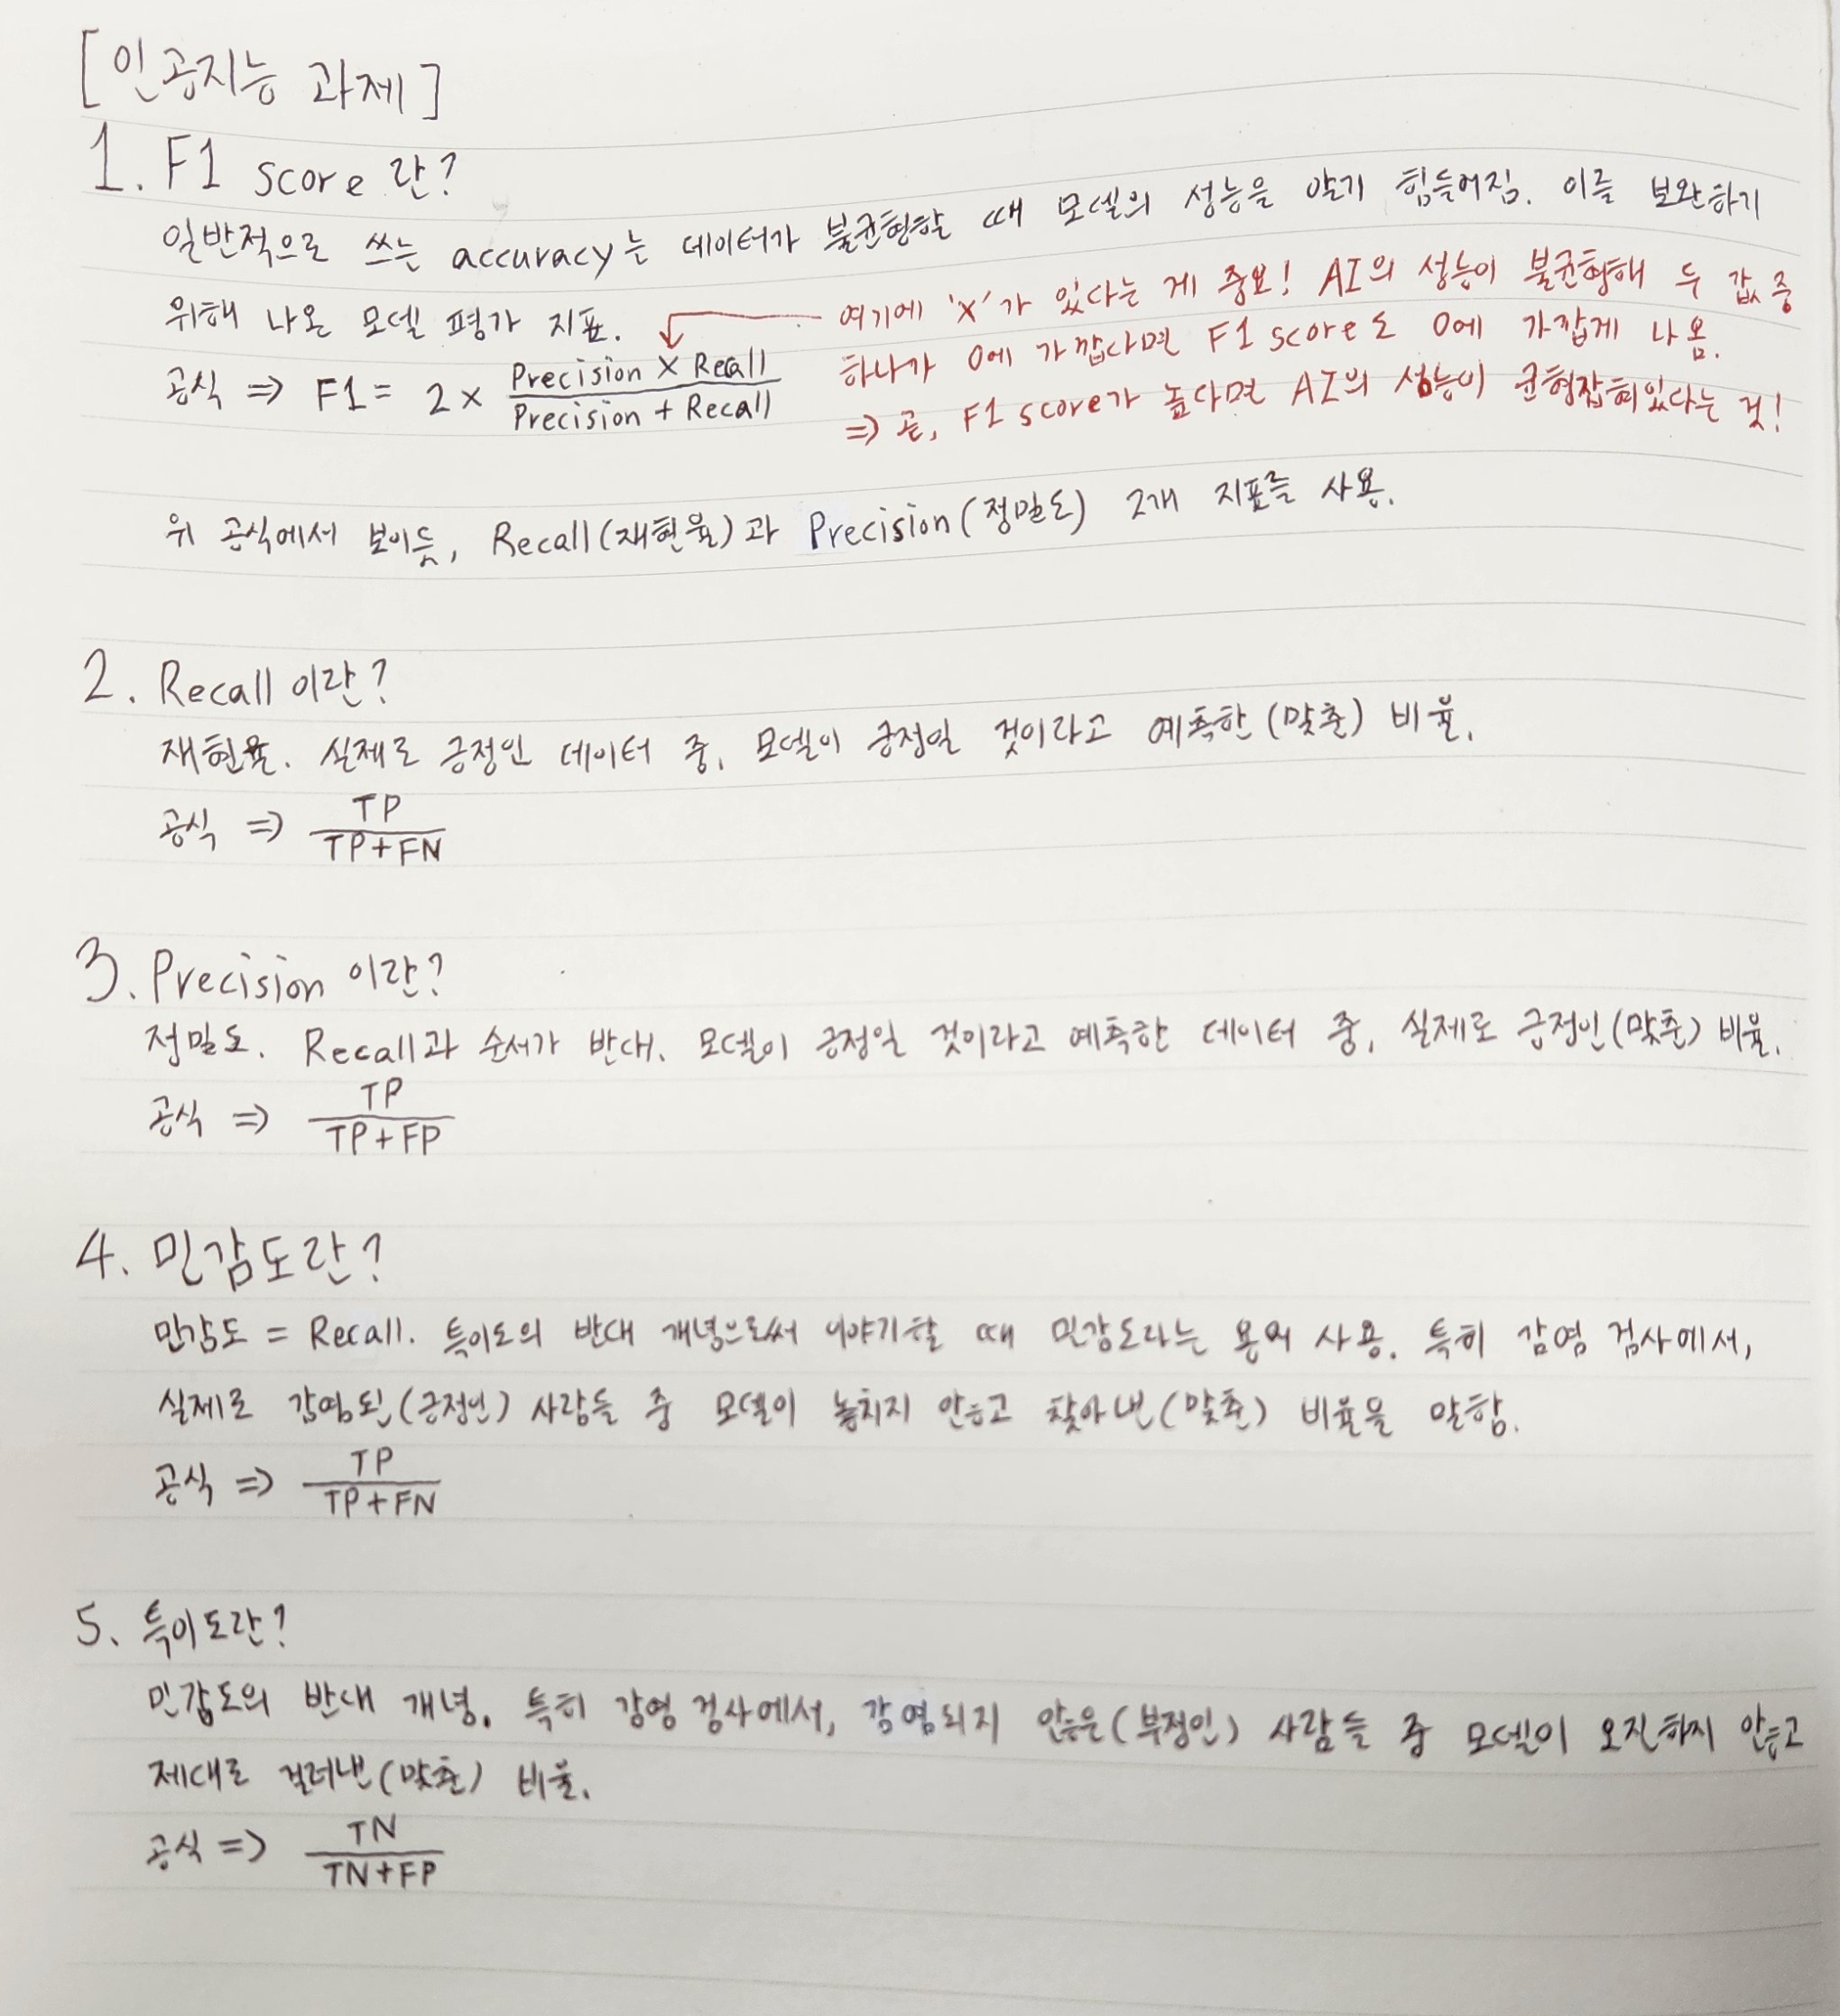 [인공지능 과제]
1. F1 score란?
일반적으로 쓰는 accuracy는 데이터가 불균형할 때 모델의 성능을 알기 힘들어짐. 이를 보완하기
위해 나온 모델 평가 지표.
여기에 'x'가 있다는 게 중요! AI의 성능이 불균형해 두 값 중
하나가 0에 가깝다면 F1 score도 0에 가깝게 나옴.
⇒ 곧, F1 score가 높다면 AI의 성능이 균형잡혀있다는 것!
공식 ⇒ F1 = 2 × (Precision × Recall) / (Precision + Recall)
위 공식에서 보이듯, Recall(재현율)과 Precision(정밀도) 2개 지표를 사용.
2. Recall이란?
재현율. 실제로 긍정인 데이터 중, 모델이 긍정일 것이라고 예측한(맞춘) 비율.
공식 ⇒ TP / (TP+FN)
3. Precision이란?
정밀도. Recall과 순서가 반대. 모델이 긍정일 것이라고 예측한 데이터 중, 실제로 긍정인(맞춘) 비율.
공식 ⇒ TP / (TP+FP)
4. 민감도란?
민감도 = Recall. 특이도의 반대 개념으로써 이야기할 때 민감도라는 용어 사용. 특히 감염 검사에서,
실제로 감염된(긍정인) 사람들 중 모델이 놓치지 않고 찾아낸(맞춘) 비율을 말함.
공식 ⇒ TP / (TP+FN)
5. 특이도란?
민감도의 반대 개념. 특히 감염 검사에서, 감염되지 않은(부정인) 사람들 중 모델이 오진하지 않고
제대로 걸러낸(맞춘) 비율.
공식 ⇒ TN / (TN+FP)